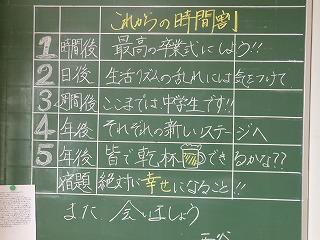 これからの時間割
1 時間後 最高の卒業式にしよう!!
2 日後 生活リズムの乱れには気をつけて
3 週間後 ここまでは中学生です!!
4 年後 それぞれの新しいステージへ
5 年後 皆で乾杯できるかな??
宿題 絶対に幸せになること!!
また会いましょう